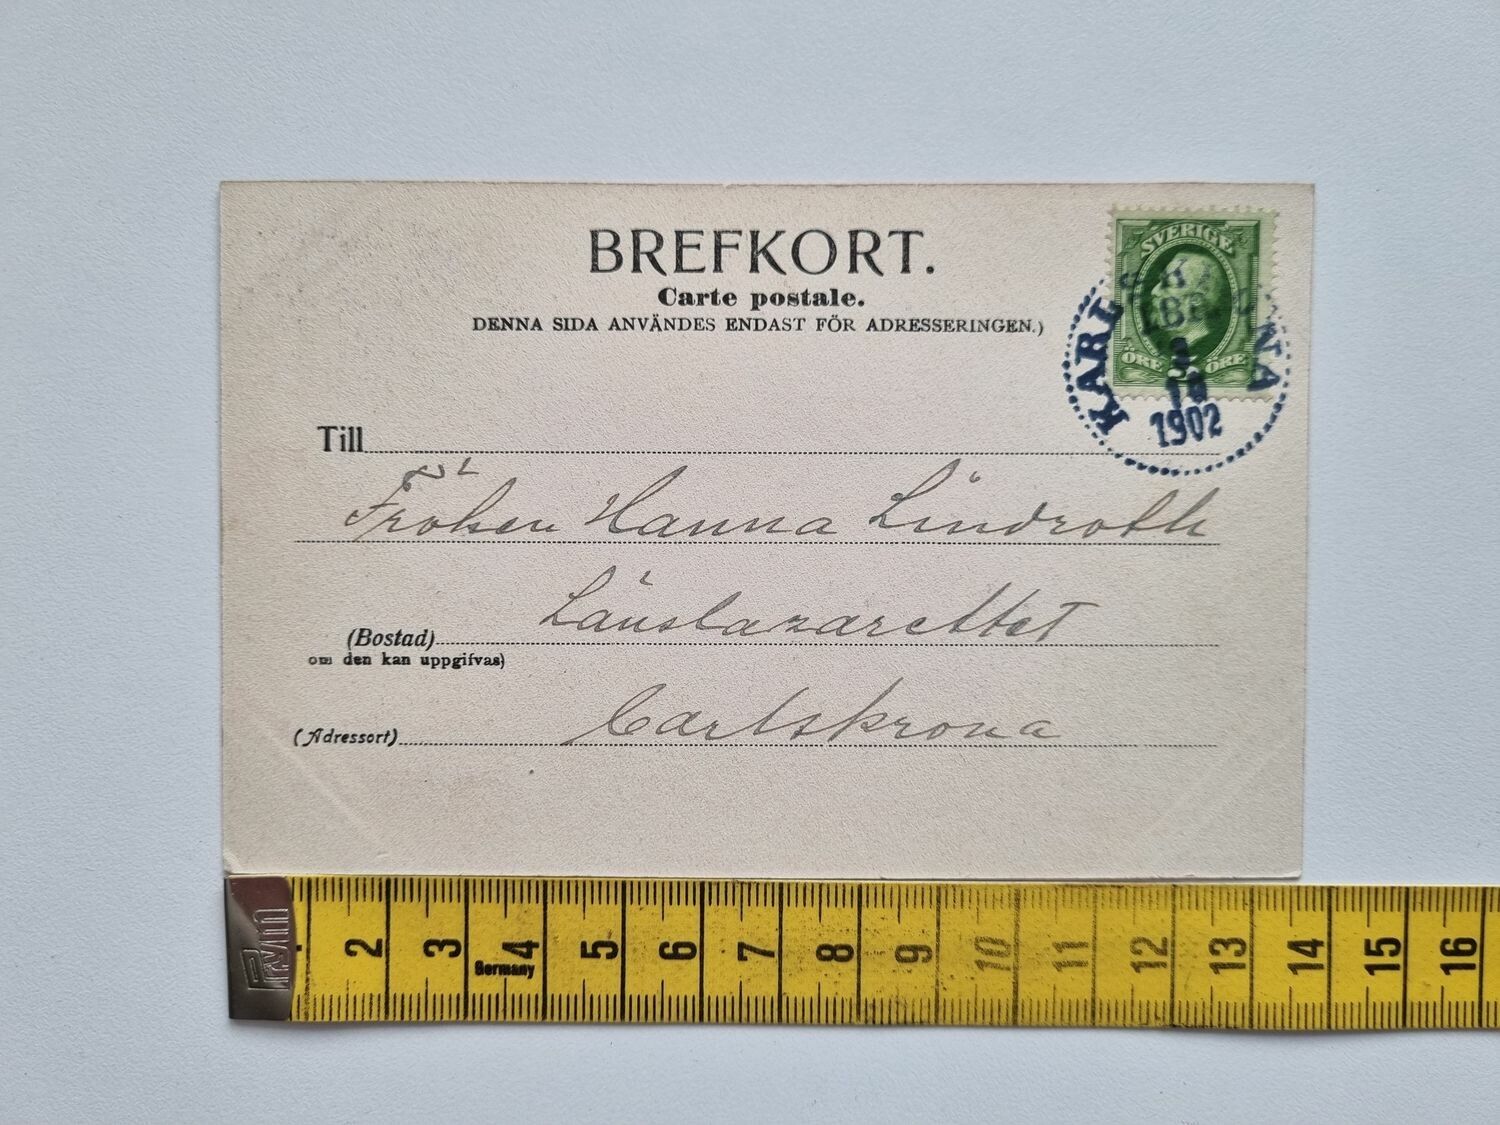 BREFKORT.
Carte postale.
DENNA SIDA ANVÄNDES ENDAST FÖR ADRESSERINGEN.)
SVERIGE
ÖRE 5 ÖRE
1902
Till
Fröken Hanna Lindroth
Länslazarettet
(Bostad)
om den kan uppgifvas)
Carlskrona
(Adressort)
1 2 3 4 5 6 7 8 9 10 11 12 13 14 15 16
Germany